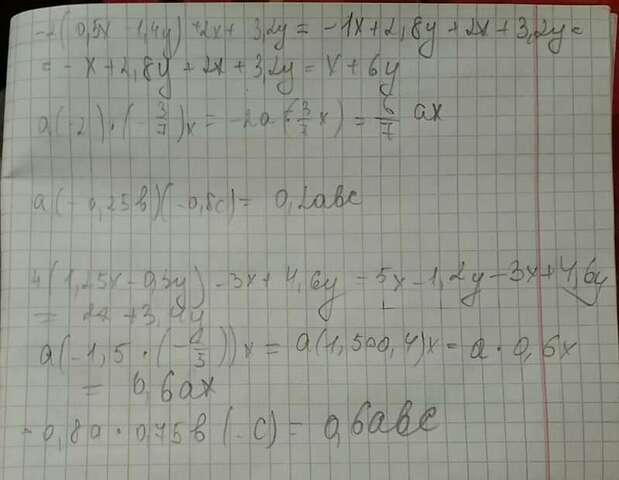 -2(0,5x - 1,4y) + 2x + 3,2y = -1x + 2,8y + 2x + 3,2y =
= -x + 2,8y + 2x + 3,2y = x + 6y
a(-2)·(-3/7)x = -2a(-3/7 x) = 6/7 ax
a(-0,25b)(-0,8c) = 0,2abc
4(1,25x - 0,3y) - 3x + 4,6y = 5x - 1,2y - 3x + 4,6y
= 2x + 3,4y
x = a(1,5·0,4)x = a·0,6x
= 0,6ax
-0,8a·0,75b(-c) = 0,6abc